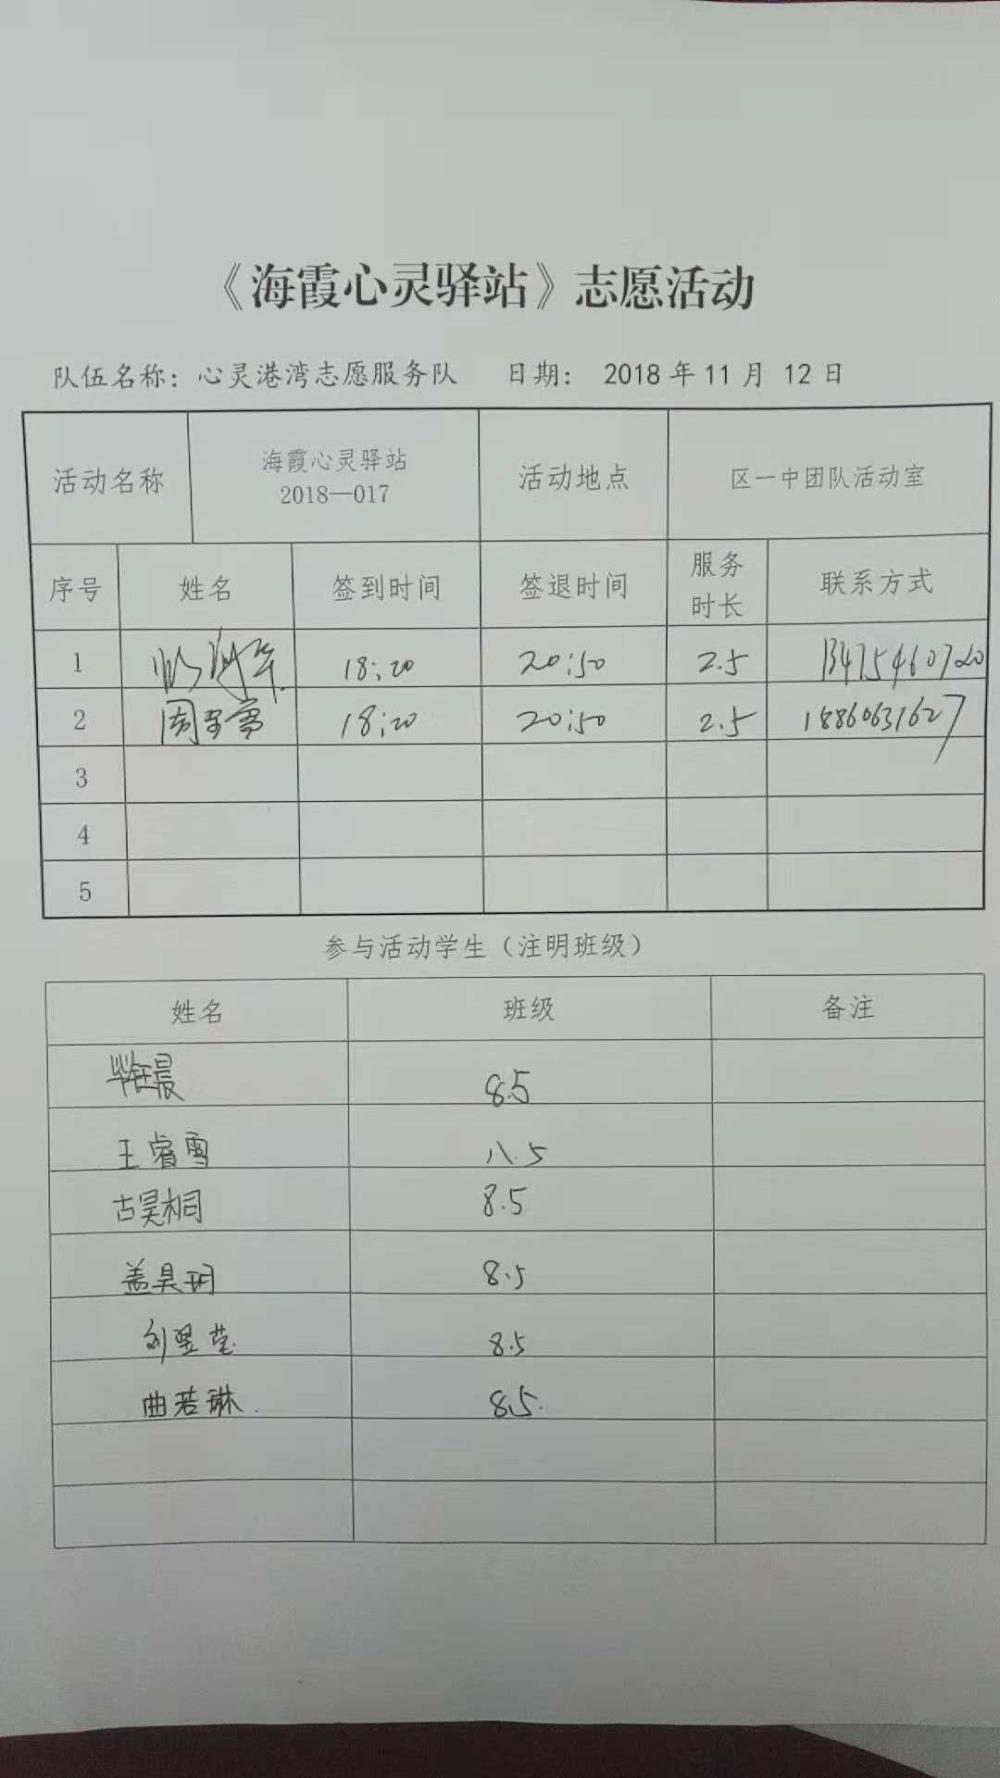 《海霞心灵驿站》志愿活动
队伍名称：心灵港湾志愿服务队 日期： 2018 年 11 月 12 日
活动名称 海霞心灵驿站 2018—017 活动地点 区一中团队活动室
序号 姓名 签到时间 签退时间 服务时长 联系方式
1 18:20 20:50 2.5 13475460720
2 周 18:20 20:50 2.5 18860631627
3
4
5
参与活动学生（注明班级）
姓名 班级 备注
毕钰晨 8.5
王睿雪 八.5
古昊桐 8.5
盖昊玥 8.5
刘昱莹 8.5
曲若琳. 8.5.